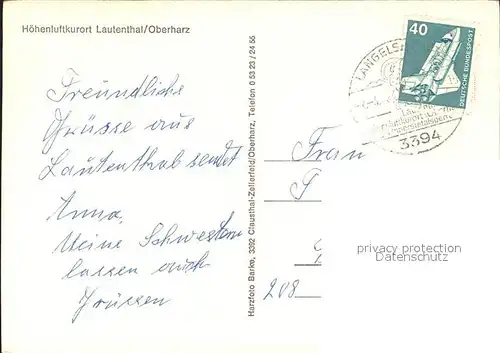 Höhenluftkurort Lautenthal/Oberharz
Freundliche
Grüsse aus
Lautenthal sendet
Anna.
Meine Schwestern
lassen auch
Grüssen
Harzfoto Barke, 3392 Clausthal-Zellerfeld/Oberharz, Telefon 0 53 23 / 24 56
40
DEUTSCHE BUNDESPOST
LANGELS
3394
Frau
208
privacy protection
Datenschutz